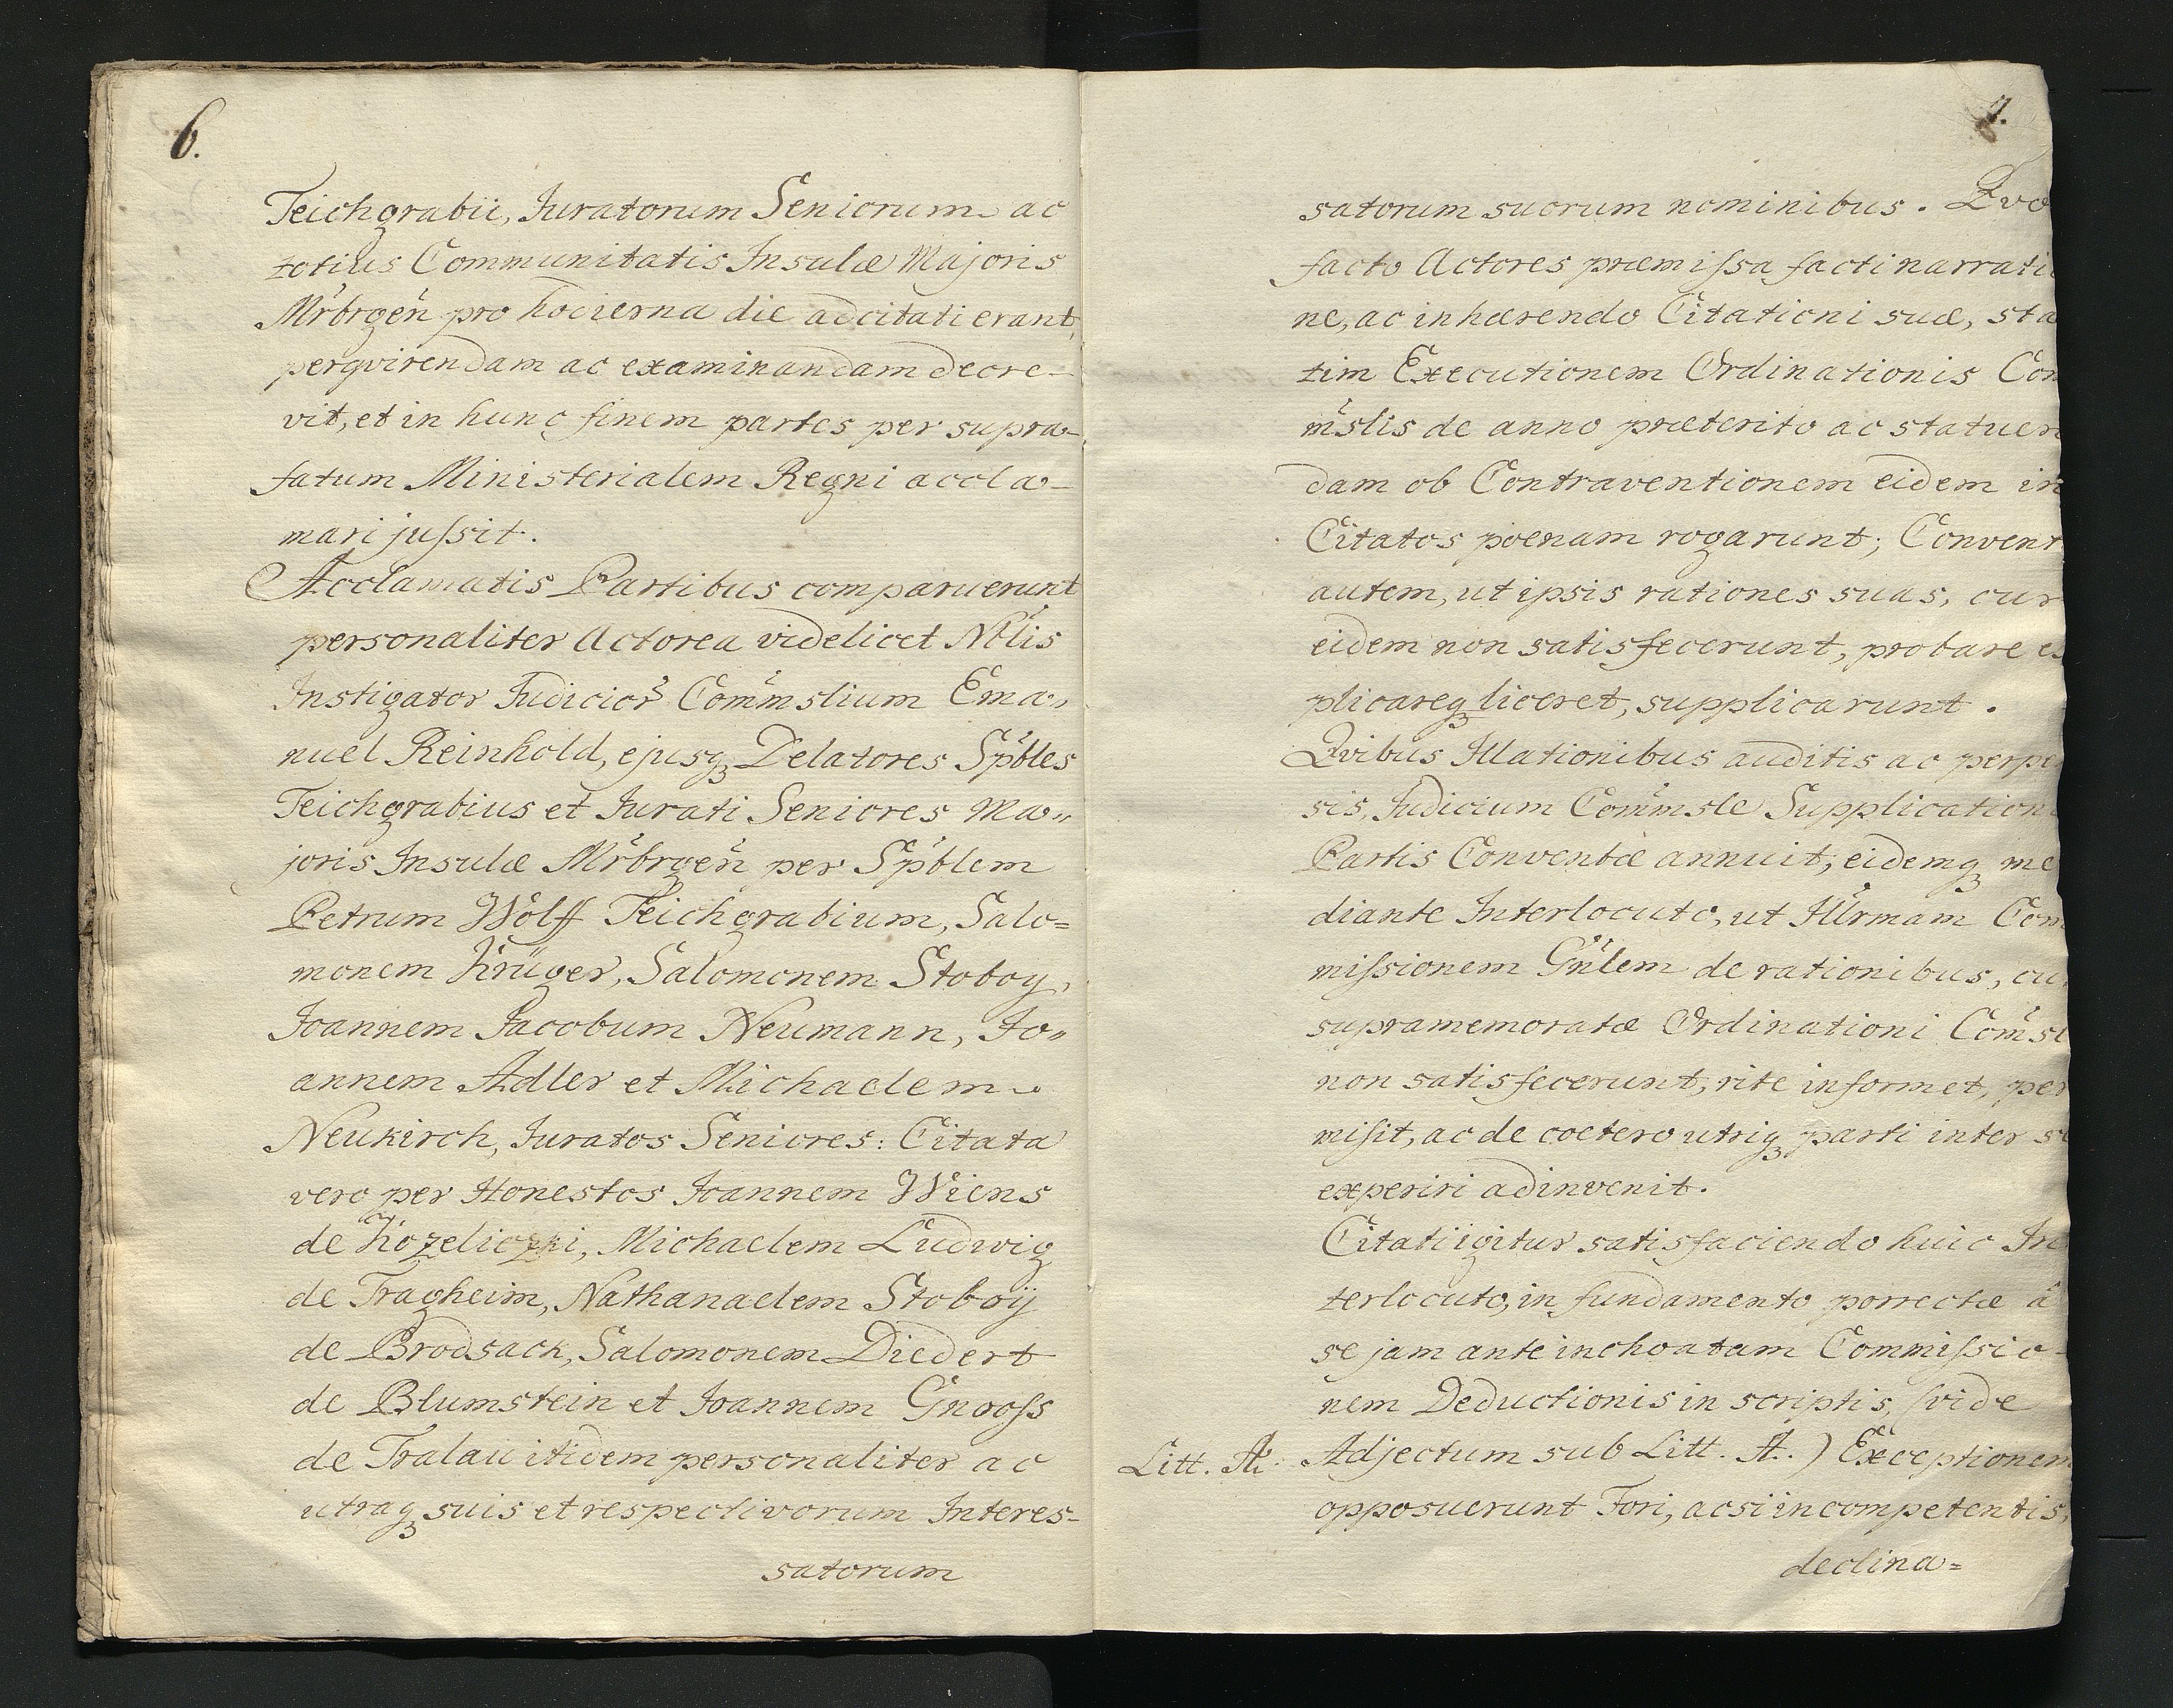 6.
Teichgrabii, Juratorum Seniorum ac
totius Communitatis Insulæ Majoris
Mr̃brgeñ pro hodierna die adcitati erant,
perqvirendam ac examinandam decre-
vit, et in hunc finem partes per supra-
fatum Ministerialem Regni accla-
mari juſsit.
Acclamatis Partibus comparuerunt
personaliter Actorea videlicet Nb̃lis
Instigator Judicior̃ Com̃slium Ema„
nuel Reinhold, ejusq₃ Delatores Spb̃les
Teichgrabius et Jurati Seniores Ma„
joris Insulæ Mr̃brgeñ per Spb̃lem
Petrum Wölff Teichgrabium, Salo=
monem Krüger, Salomonem Stoboy,
Joannem Jacobum Neumann, Jo„
annem Adler et Michaelem
Neukirch, Juratos Seniores: Citata
vero per Honestos Joannem Wiens
de Kozeliczki, Michaelem Ludwig
de Tragheim, Nathanaelem Stoboij
de Brodsack, Salomonem Diedert
de Blumstein et Joannem Gnooſs
de Tralau itidem personaliter ac
utraq₃ suis et respectivorum Interes-
satorum
7.
satorum suorum nominibus. Qvo
facto Actores præmiſsa facti narrati
ne, ac inhærendo Citationi suæ, sta
tim Executionem Ordinationis Com
m̃slis de anno præterito ac statuen
dam ob Contraventionem eidem in
Citatos poenam rogarunt; Convent
autem, ut ipsis rationes suas, cur
eidem non satisfecerunt, probare ex
plicareq₃ liceret, supplicarunt.
Qvibus Illationibus auditis ac perpen
sis, Judicium Com̃sle Supplication
Partis Conventæ annuit, eidemq₃ me
diante Interlocuto, ut Ill̃rmam Com
miſsionem Gñlem de rationibus, cur
supramemoratæ Ordinationi Com̃sl
non satisfecerunt, rite informet, per
misit, ac de coetero utriq₃ parti inter se
experiri adinvenit.
Citati igitur satisfaciendo huic In
terlocuto, in fundamento porrectæ â
se jam ante inchoatam Commiſsio-
nem Deductionis in scriptis, (vide
Litt. A. Adjectum sub Litt. A.) Exceptionem
opposuerunt Fori, acsi incompetentis,
declina=